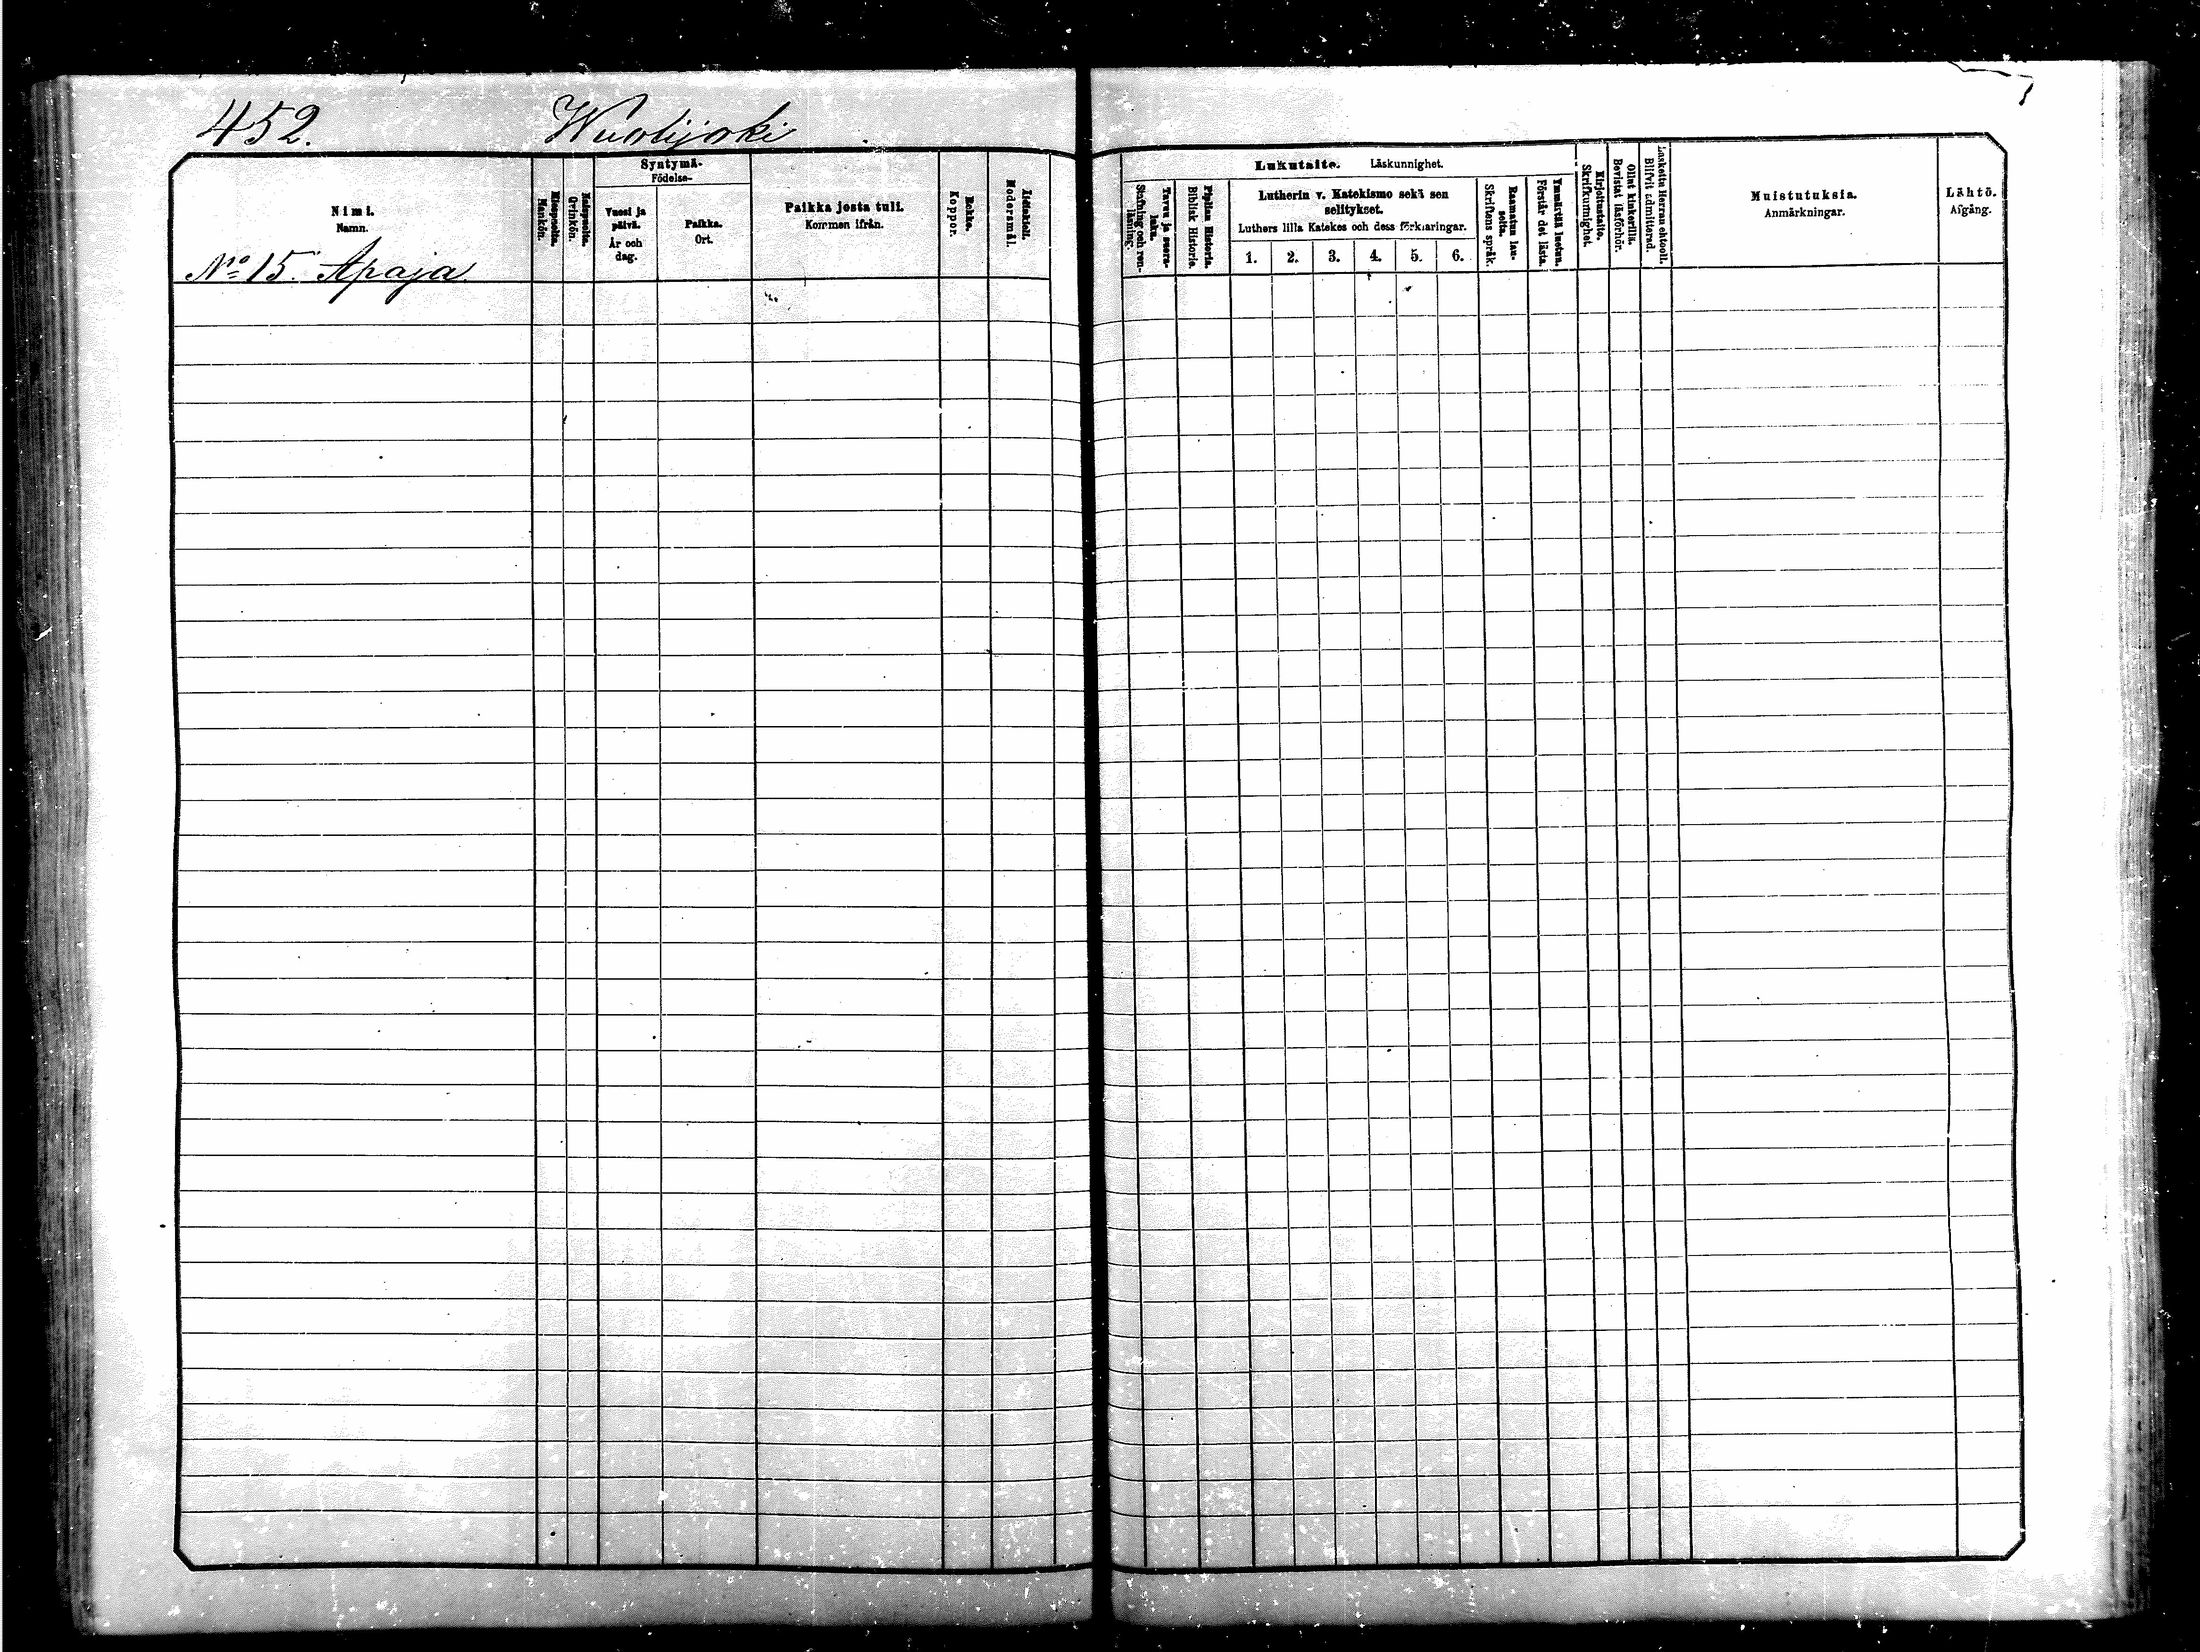 452.
Wuolijoki
Nimi.
Namn.
Miespuolta.
Mankön.
Vaimopuolta.
Qvinkön.
Syntymä-
Födelse-
Vuosi ja
päivä.
År och
dag.
Paikka.
Ort.
Paikka josta tuli.
Kommen ifrån.
Rokko.
Koppor.
Äidinkieli.
Modersmål.
No 15. Apaja
Lukutaito. Läskunnighet.
Tavuu ja suora-
luku.
Stafning och ren-
läsning.
Piplian Historia.
Biblisk Historie.
Lutherin v. Katekismo sekä sen
selitykset.
Luthers lilla Katekes och dess förklaringar.
1. 2. 3. 4. 5. 6.
Raamatun lau-
seita.
Skriftens språk.
Ymmärtää luetun.
Förstår det lästa.
Kirjoitustaito.
Skrifkunnighet.
Ollut kinkerillä.
Bevistat läsförhör.
Laskettu Herran ehtooll.
Blifvit admitterad.
Muistutuksia.
Anmärkningar.
Lähtö.
Afgång.